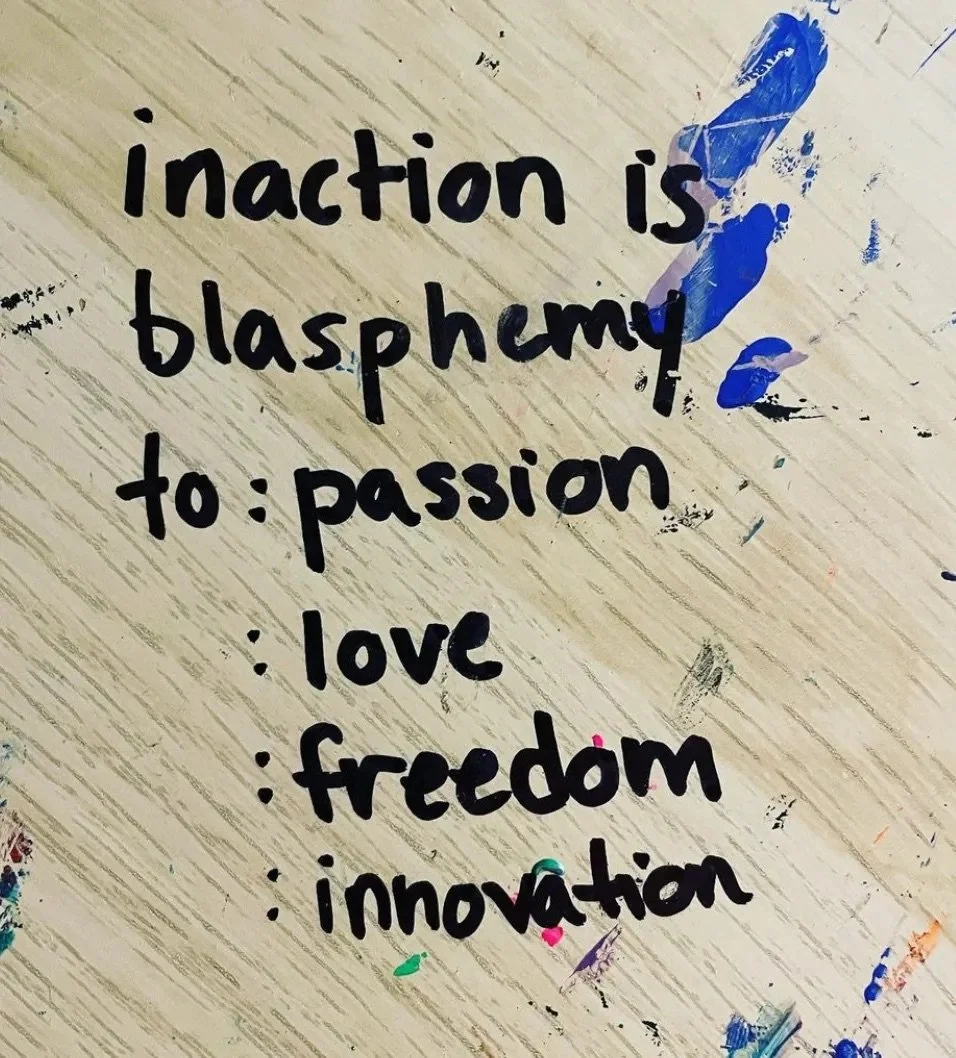 inaction is
blasphemy
to: passion
: love
: freedom
: innovation